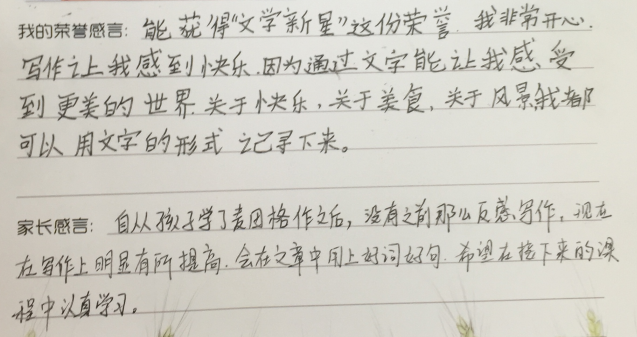 我的荣誉感言：能获得“文学新星”这份荣誉．我非常开心．
写作让我感到快乐．因为通过文字能让我感受
到更美的世界．关于快乐，关于美食，关于风景我都
可以用文字的形式记录下来。
家长感言：自从孩子学了麦田格作之后，没有之前那么反感写作，现在
在写作上明显有所提高．会在文章中用上好词好句．希望在接下来的课
程中认真学习。